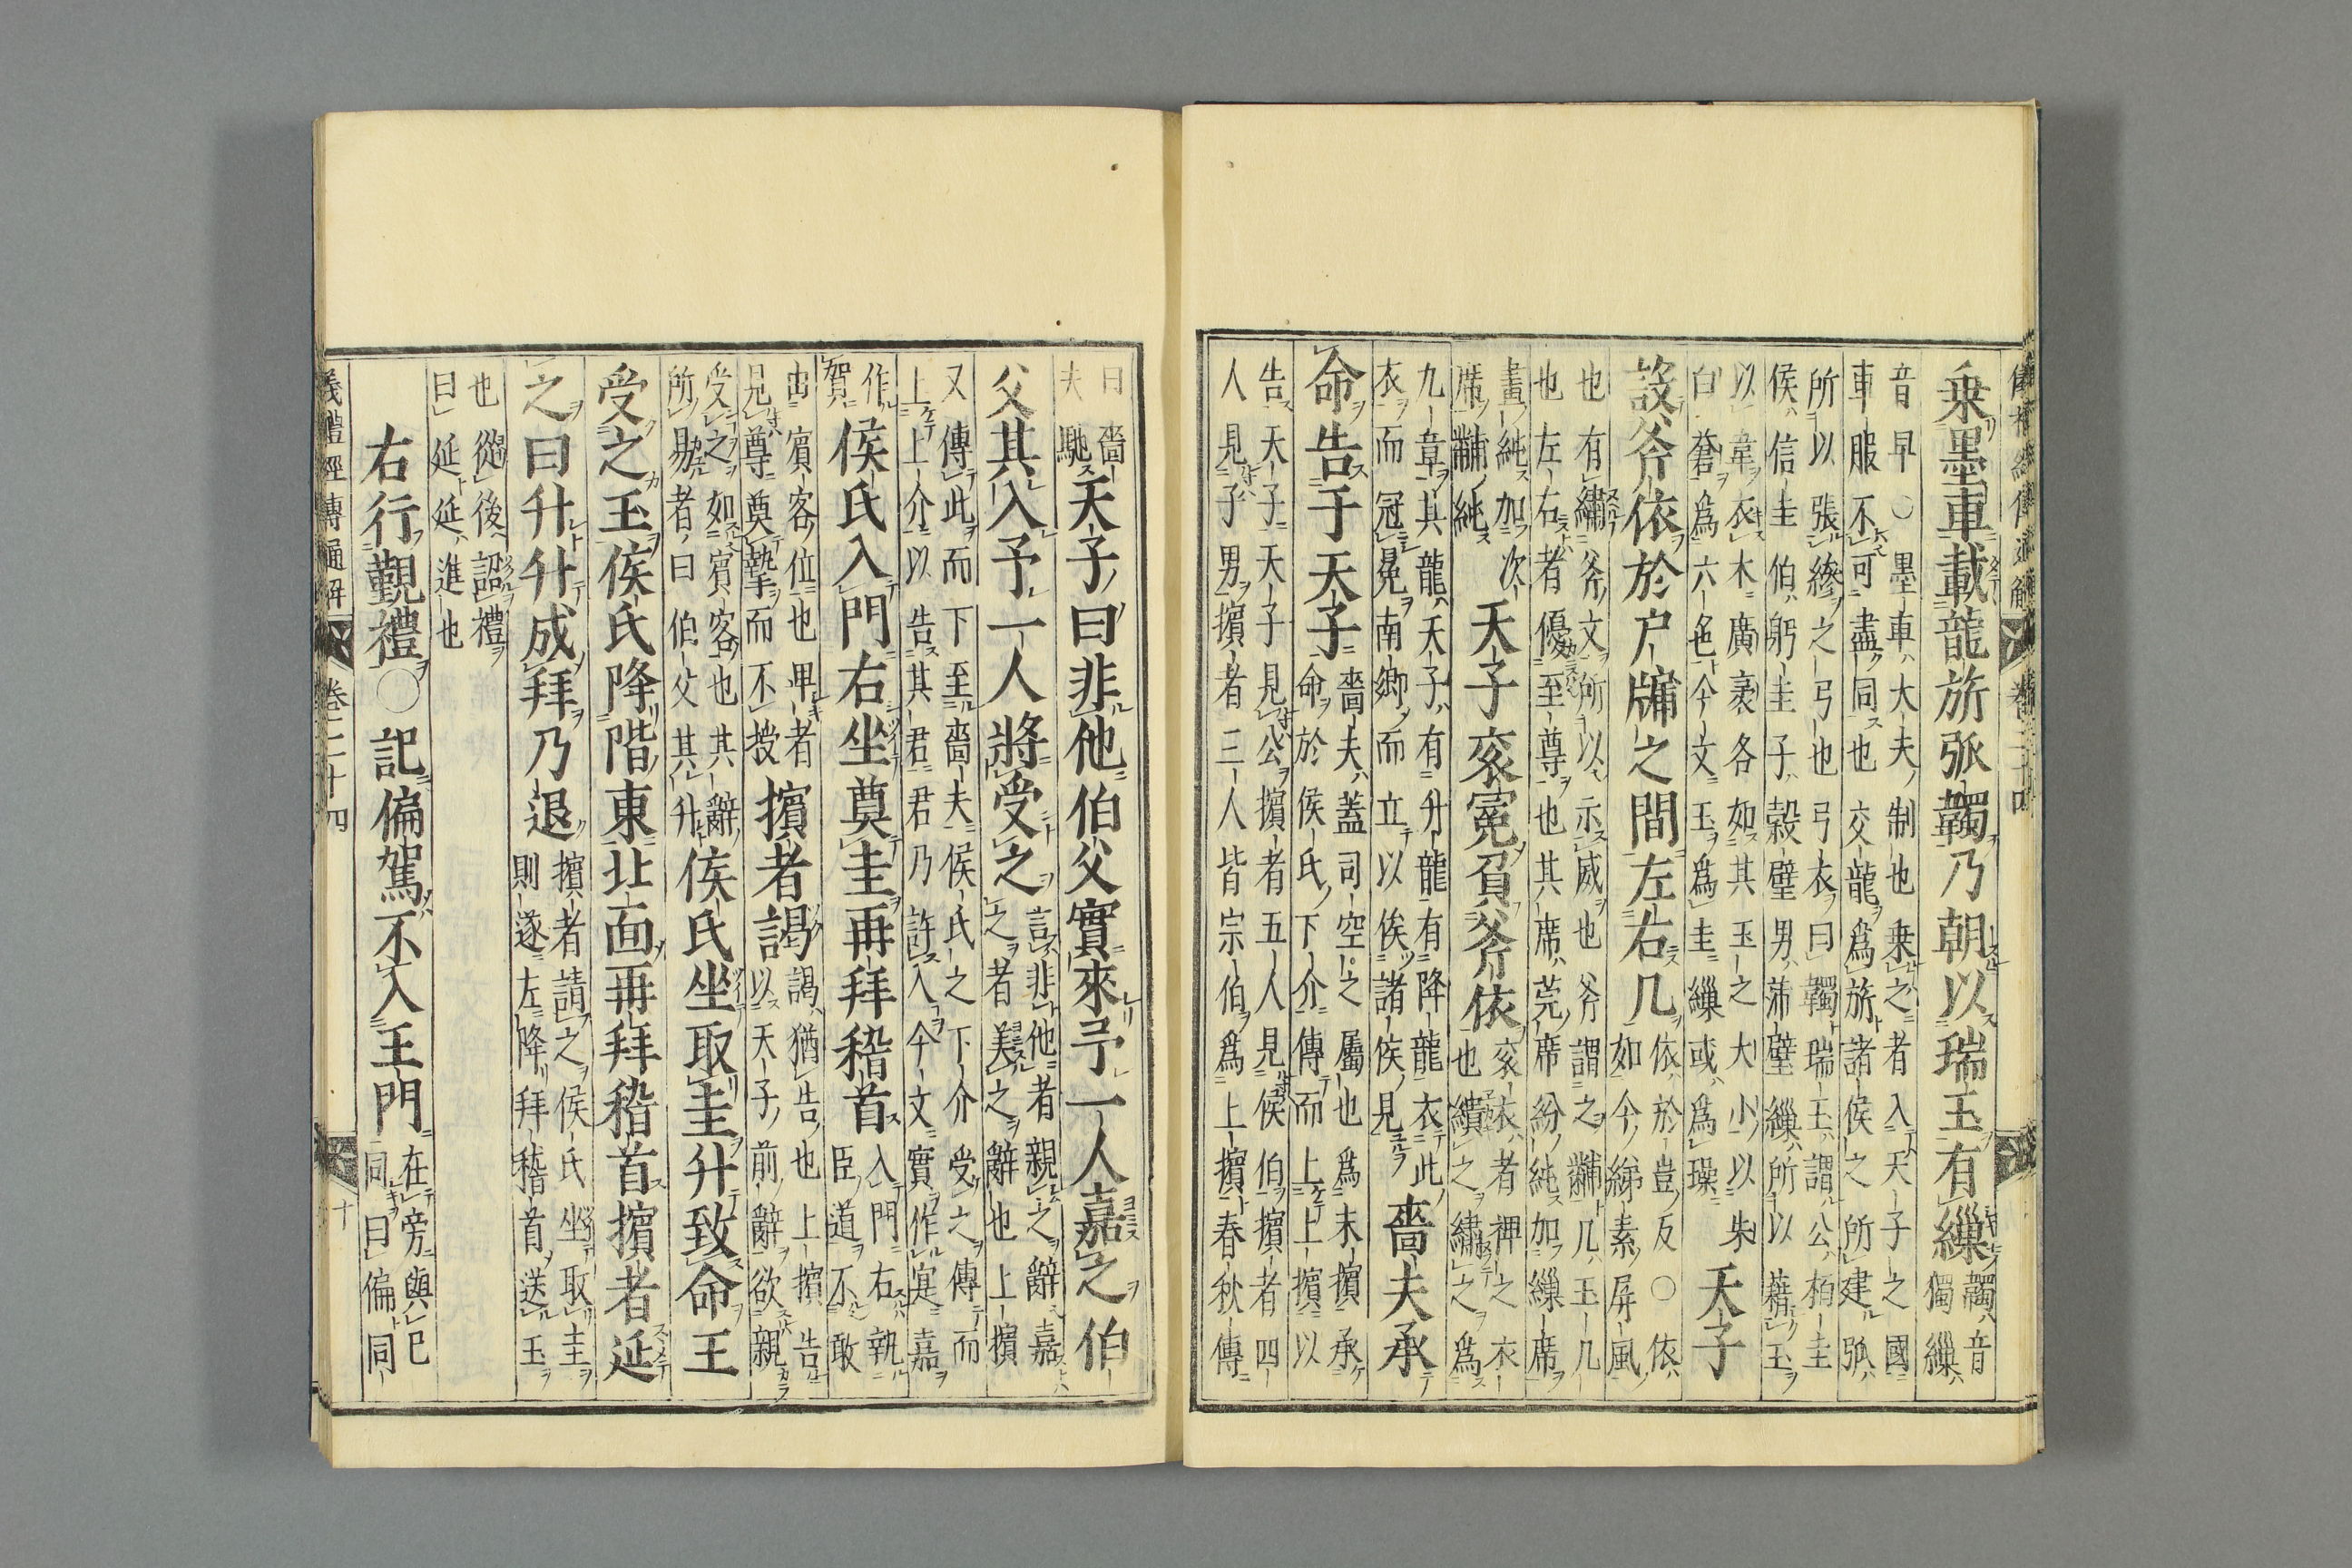 儀禮經傳通解 卷二十四
乗墨車載龍旂弧韣乃朝以瑞玉有繅
韣音
獨繅
音早〇墨車大夫制也乗之者入天子之國
車服不可盡同也交龍爲旂諸侯之所建弧
所以張縿之弓也弓衣曰韣瑞玉謂公桓圭
侯信圭伯躬圭子榖璧男蒲璧繅所以藉玉
以韋衣木廣袤各如其玉之大小以朱
白蒼爲六色今文玉爲圭繅或爲璪
天子
設斧依於戶牖之間左右几
依於豈反〇依
如今綈素屏風
也有繡斧文所以示威也斧謂之黼几玉几
也左右者優至尊也其席莞席紛純加繅席
畫純加次
席黼純
天子衮冕負斧依
衮衣者裨之衣
也繢之繡之爲
九章其龍天子有升龍有降龍衣此
衣而冠冕南鄉而立以俟諸侯見
嗇夫承
命告于天子
嗇夫蓋司空之屬也爲末擯承
命於侯氏下介傳而上上擯以
告天子天子見公擯者五人見侯伯擯者四
人見子男擯者三人皆宗伯爲上擯春秋傳
曰嗇
夫馳
天子曰非他伯父實來予一人嘉之伯
父其入予一人將受之
言非他者親之辭嘉
之者美之辭也上擯
又傳此而下至嗇夫侯氏之下介受之傳而
上上介以告其君君乃許入今文實作寔嘉
作
賀
侯氏入門右坐奠圭再拜稽首
入門右執
臣道不敢
由賓客位也卑者
見尊奠摯而不授
擯者謁
謁猶告也上擯告
以天子前辭欲親
受之如賓客也其辭
所易者曰伯父其升
侯氏坐取圭升致命王
受之玉侯氏降階東北面再拜稽首擯者延
之曰升升成拜乃退
擯者請之侯氏坐取圭
則遂左降拜稽首送玉
也從後詔禮
曰延延進也
右行覲禮〇記偏駕不入王門
在旁與已
同曰偏同
儀禮經傳通解 卷二十四 十